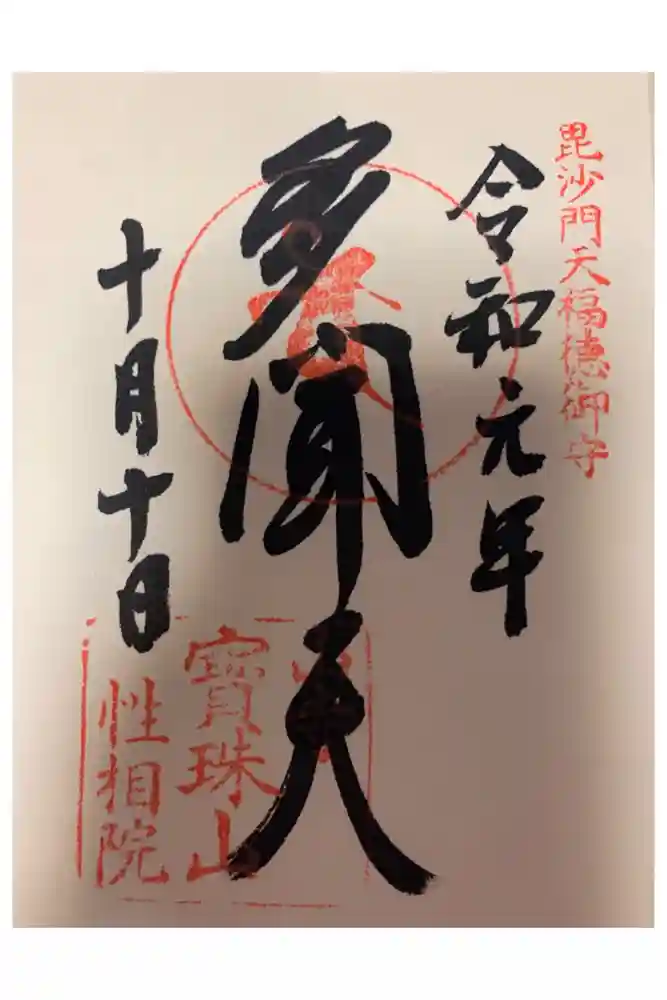 毘沙門天福徳御守
令和元年
多聞天
十月十日
寶珠山
性相院